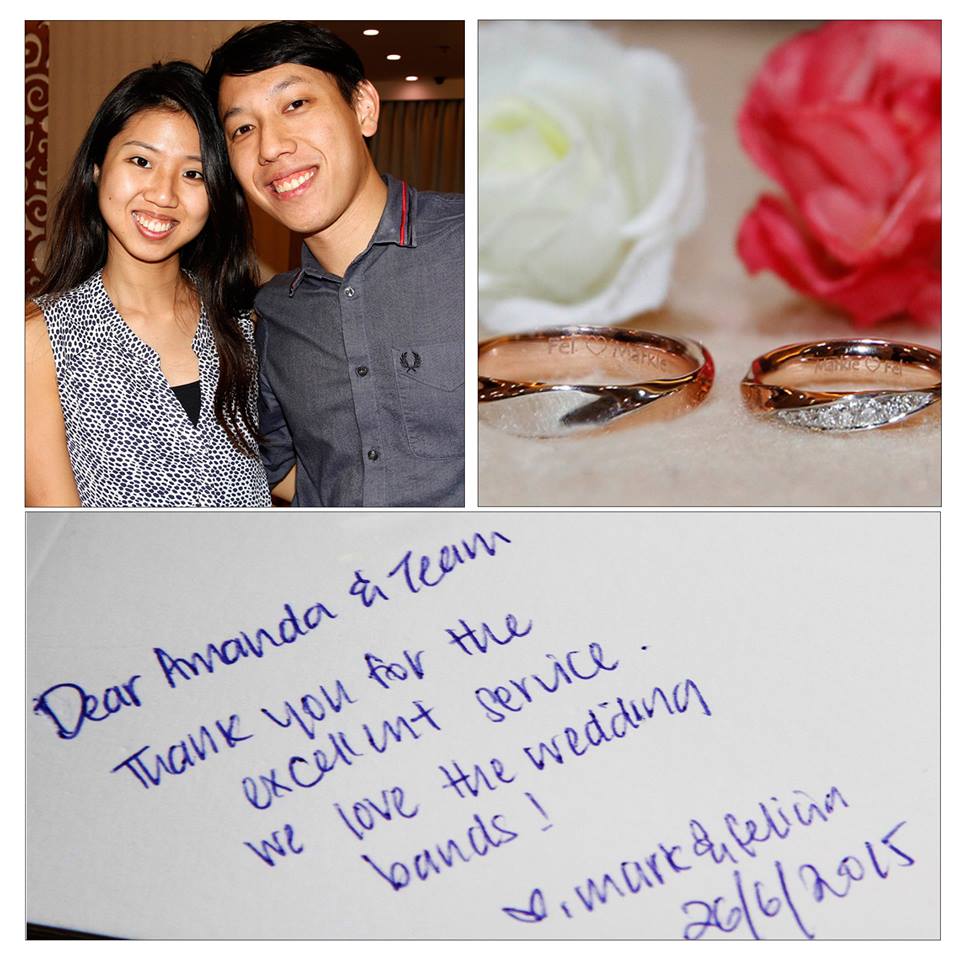 Fel ♡ Markie
Markie ♡ Fel
Dear Amanda & Team
Thank you for the
excellent service.
we love the wedding
bands!
♡. mark & felicia
26/6/2015